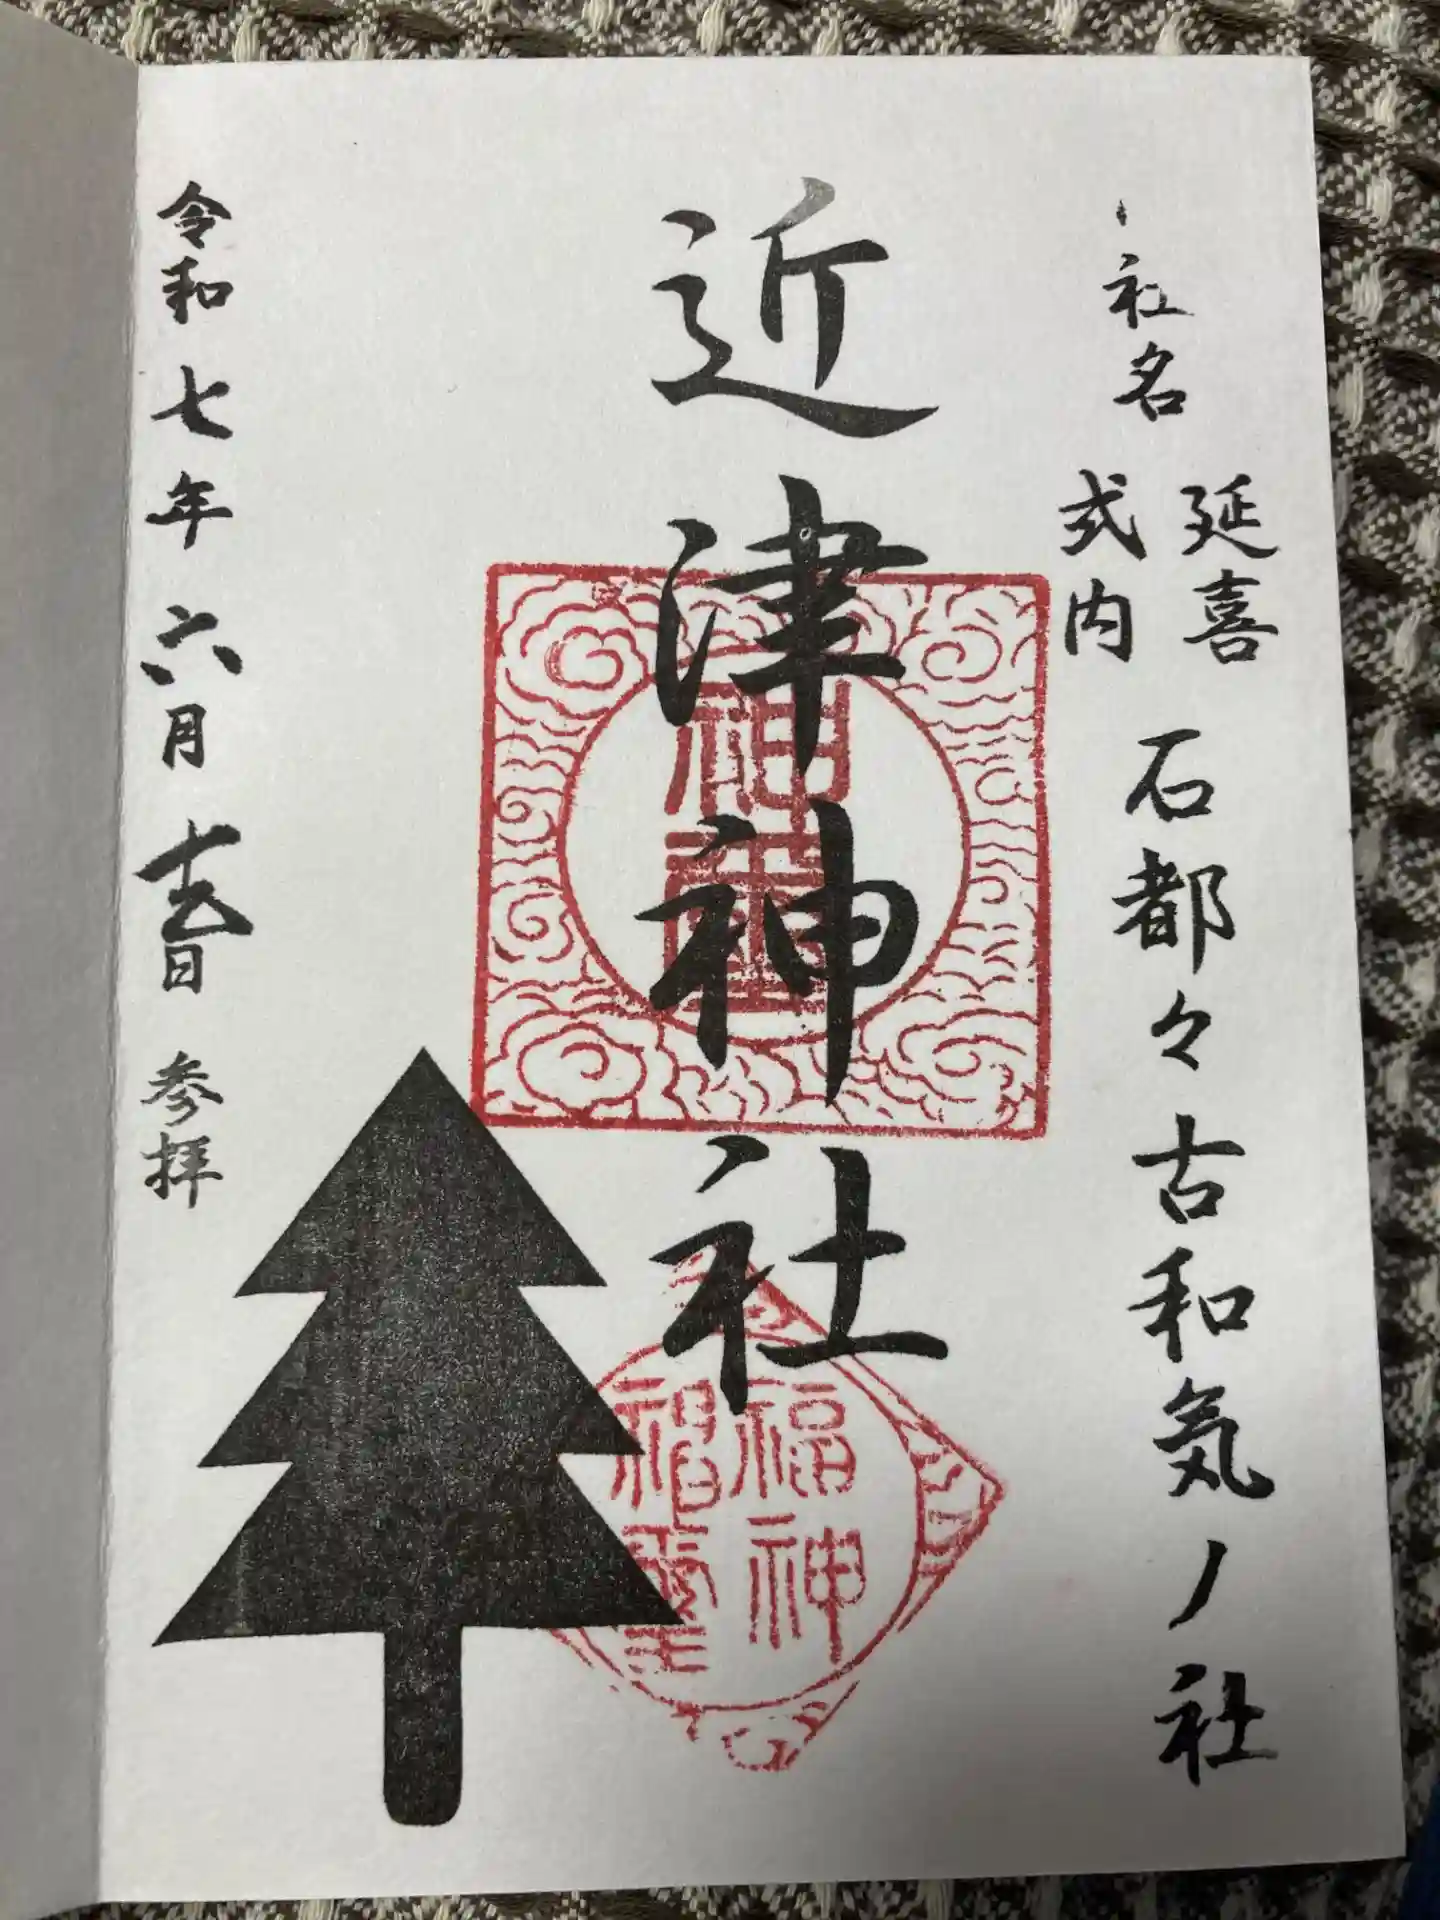 社名
延喜
式内
石都々古和気ノ社
近津神社
福神
令和七年六月
日
参拝